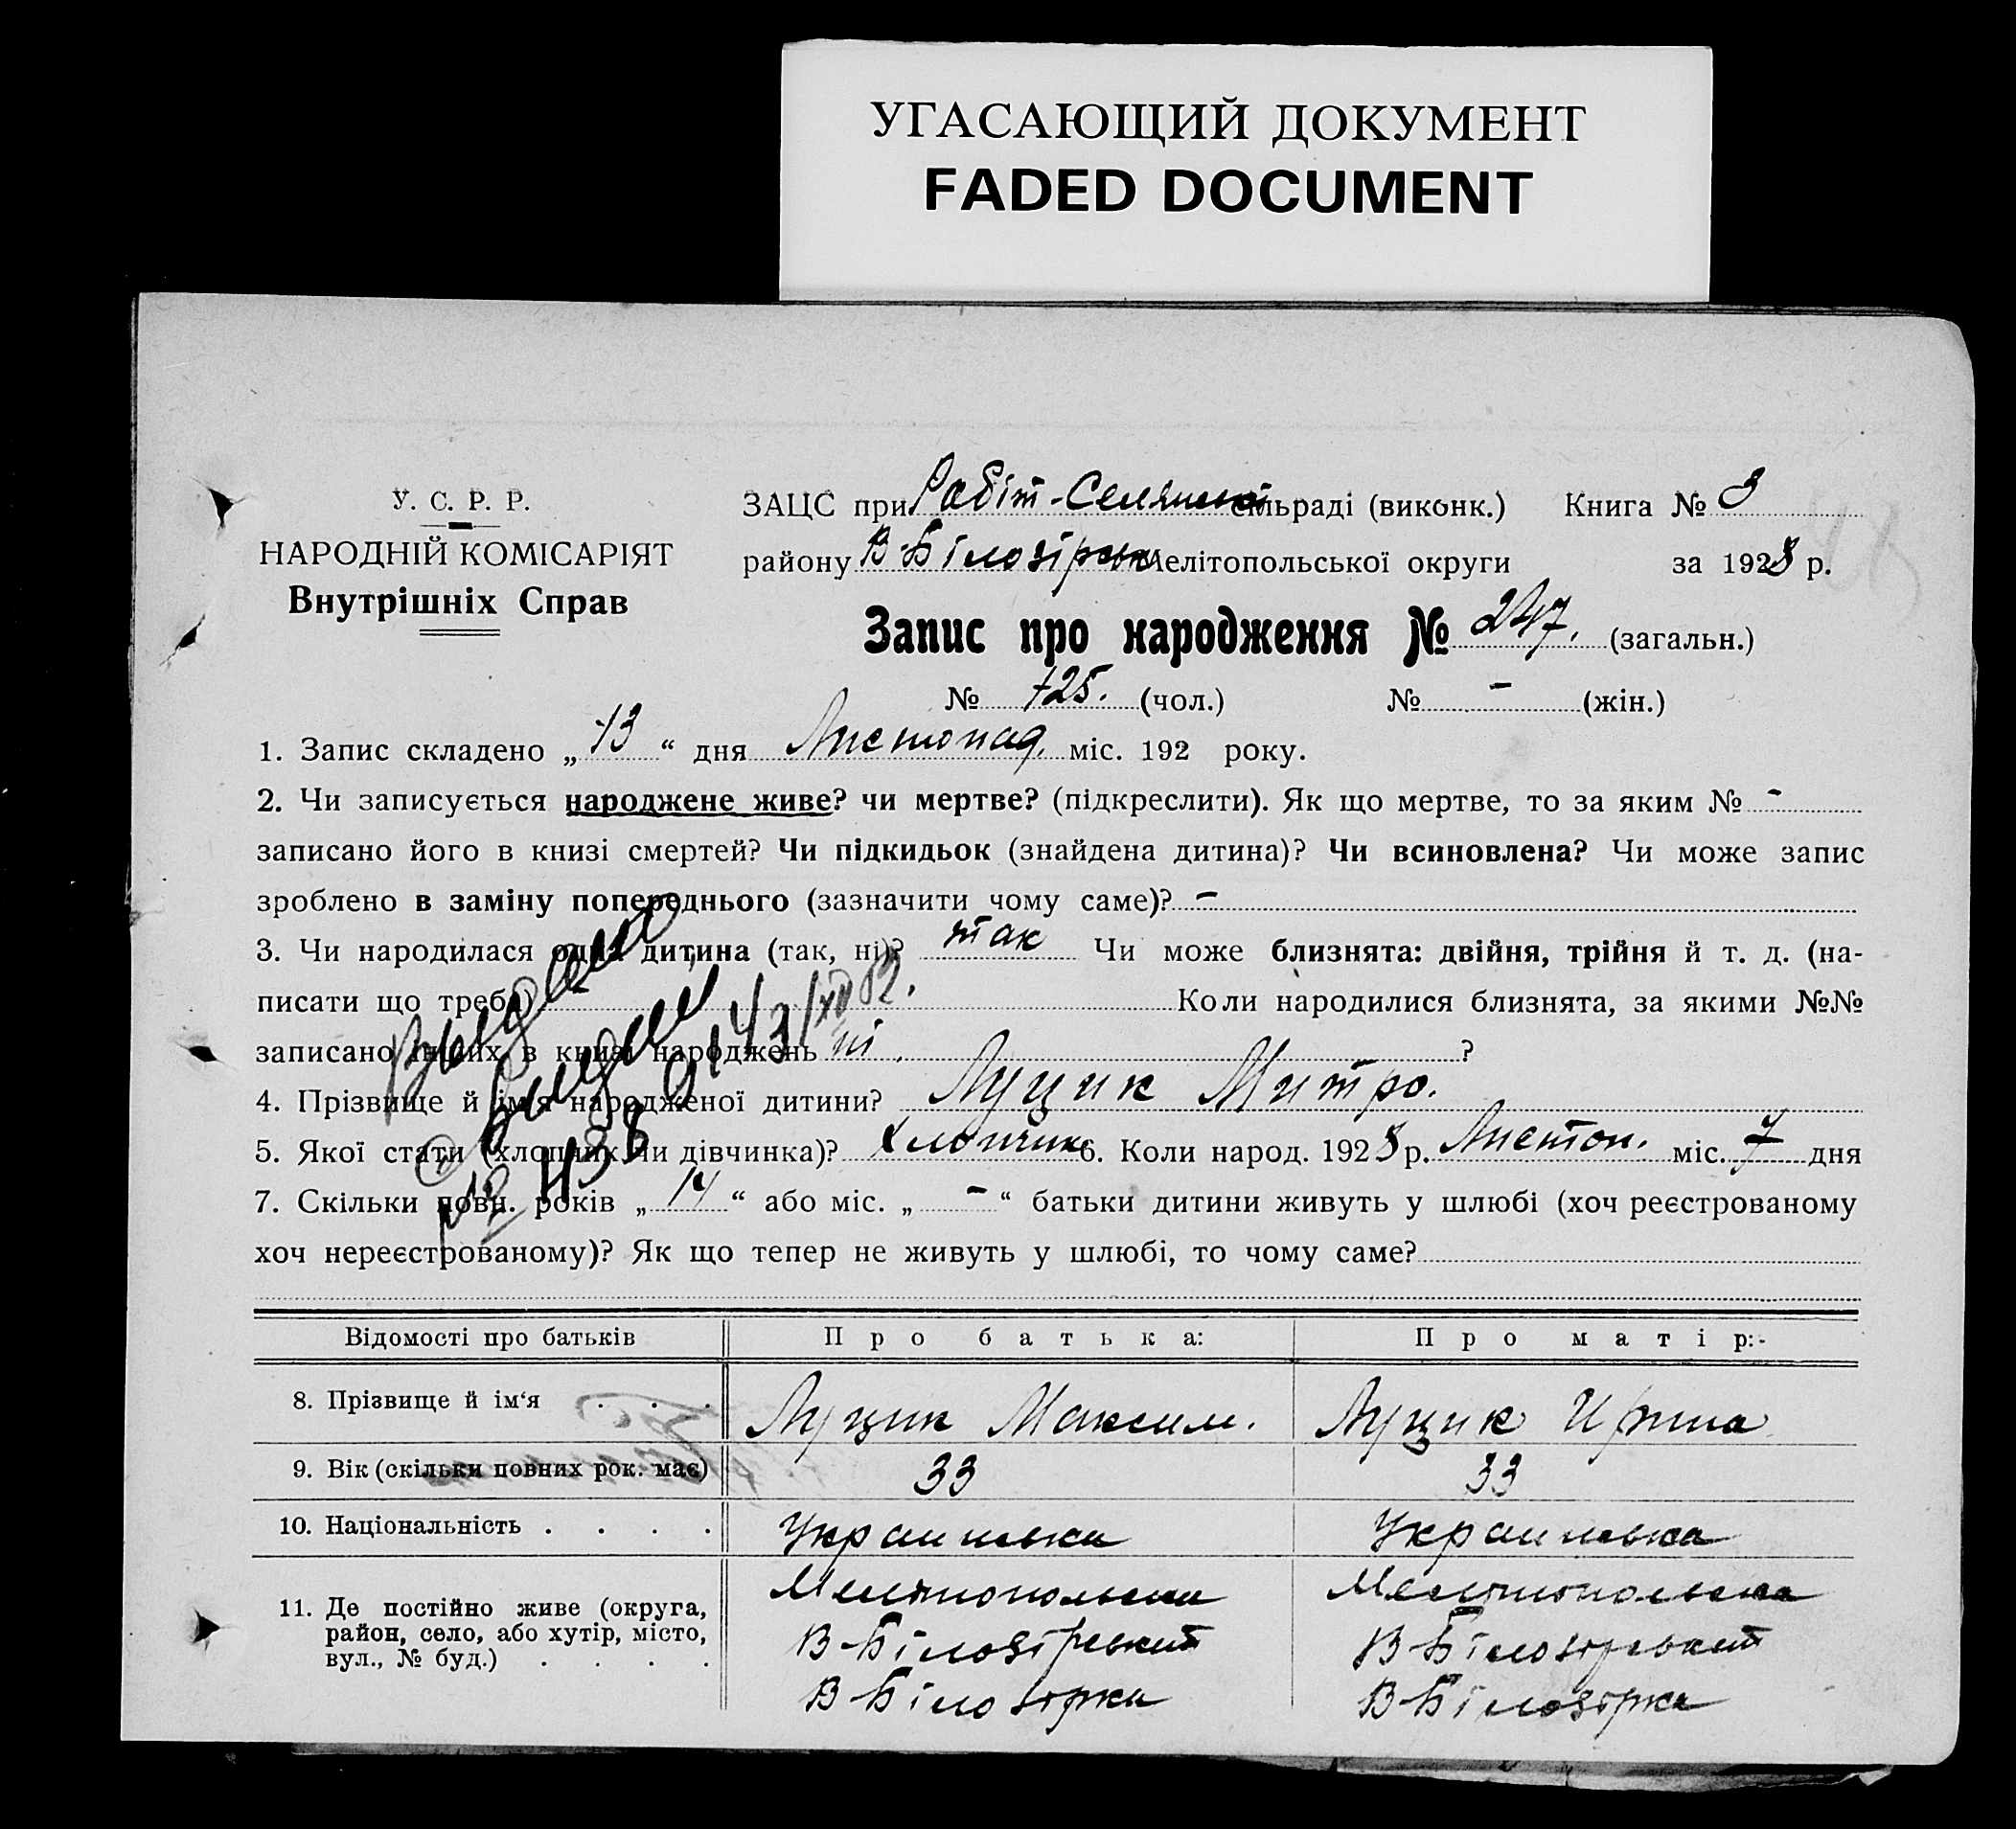 УГАСАЮЩИЙ ДОКУМЕНТ
FADED DOCUMENT
У. С. Р. Р.
НАРОДНІЙ КОМІСАРІЯТ
Внутрішніх Справ
ЗАЦС при Робіт-Селянські сільраді (виконк.) Книга № 3
району В-Білозірськ Мелітопольської округи за 1928 р.
Запис про народження № 247. (загальн.)
№ 125. (чол.) № - (жін.)
1. Запис складено „ 13 “ дня Листопад. міс. 192 року.
2. Чи записується народжене живе? чи мертве? (підкреслити). Як що мертве, то за яким № -
записано його в книзі смертей? Чи підкидьок (знайдена дитина)? Чи всиновлена? Чи може запис
зроблено в заміну попереднього (зазначити чому саме)? -
3. Чи народилася одна дитина (так, ні)? так Чи може близнята: двійня, трійня й т. д. (на-
писати що треба) Коли народилися близнята, за якими №№
записано інших в книзі народжень ні. ?
4. Прізвище й ім'я народженої дитини? Луцик Митро.
5. Якої стати (хлопчик чи дівчинка)? Хлопчик 6. Коли народ. 1928 р. Листоп. міс. 7 дня
7. Скільки повн. років „ 14 “ або міс. „ - “ батьки дитини живуть у шлюбі (хоч реєстрованому
хоч нереєстрованому)? Як що тепер не живуть у шлюбі, то чому саме?
Выдано
№ 438
Відомості про батьків Про батька: Про матір:-
8. Прізвище й ім‘я . . . Луцик Максим. Луцик Ирина
9. Вік (скільки повних рок. має) 33 33
10. Національність . . . . Украинська Украинська
11. Де постійно живе (округа, район, село, або хутір, місто, вул., № буд.) . . . .
Мелітопольська Мелітопольська
В-Білозірський В-Білозірський
В-Білозірка В-Білозірка